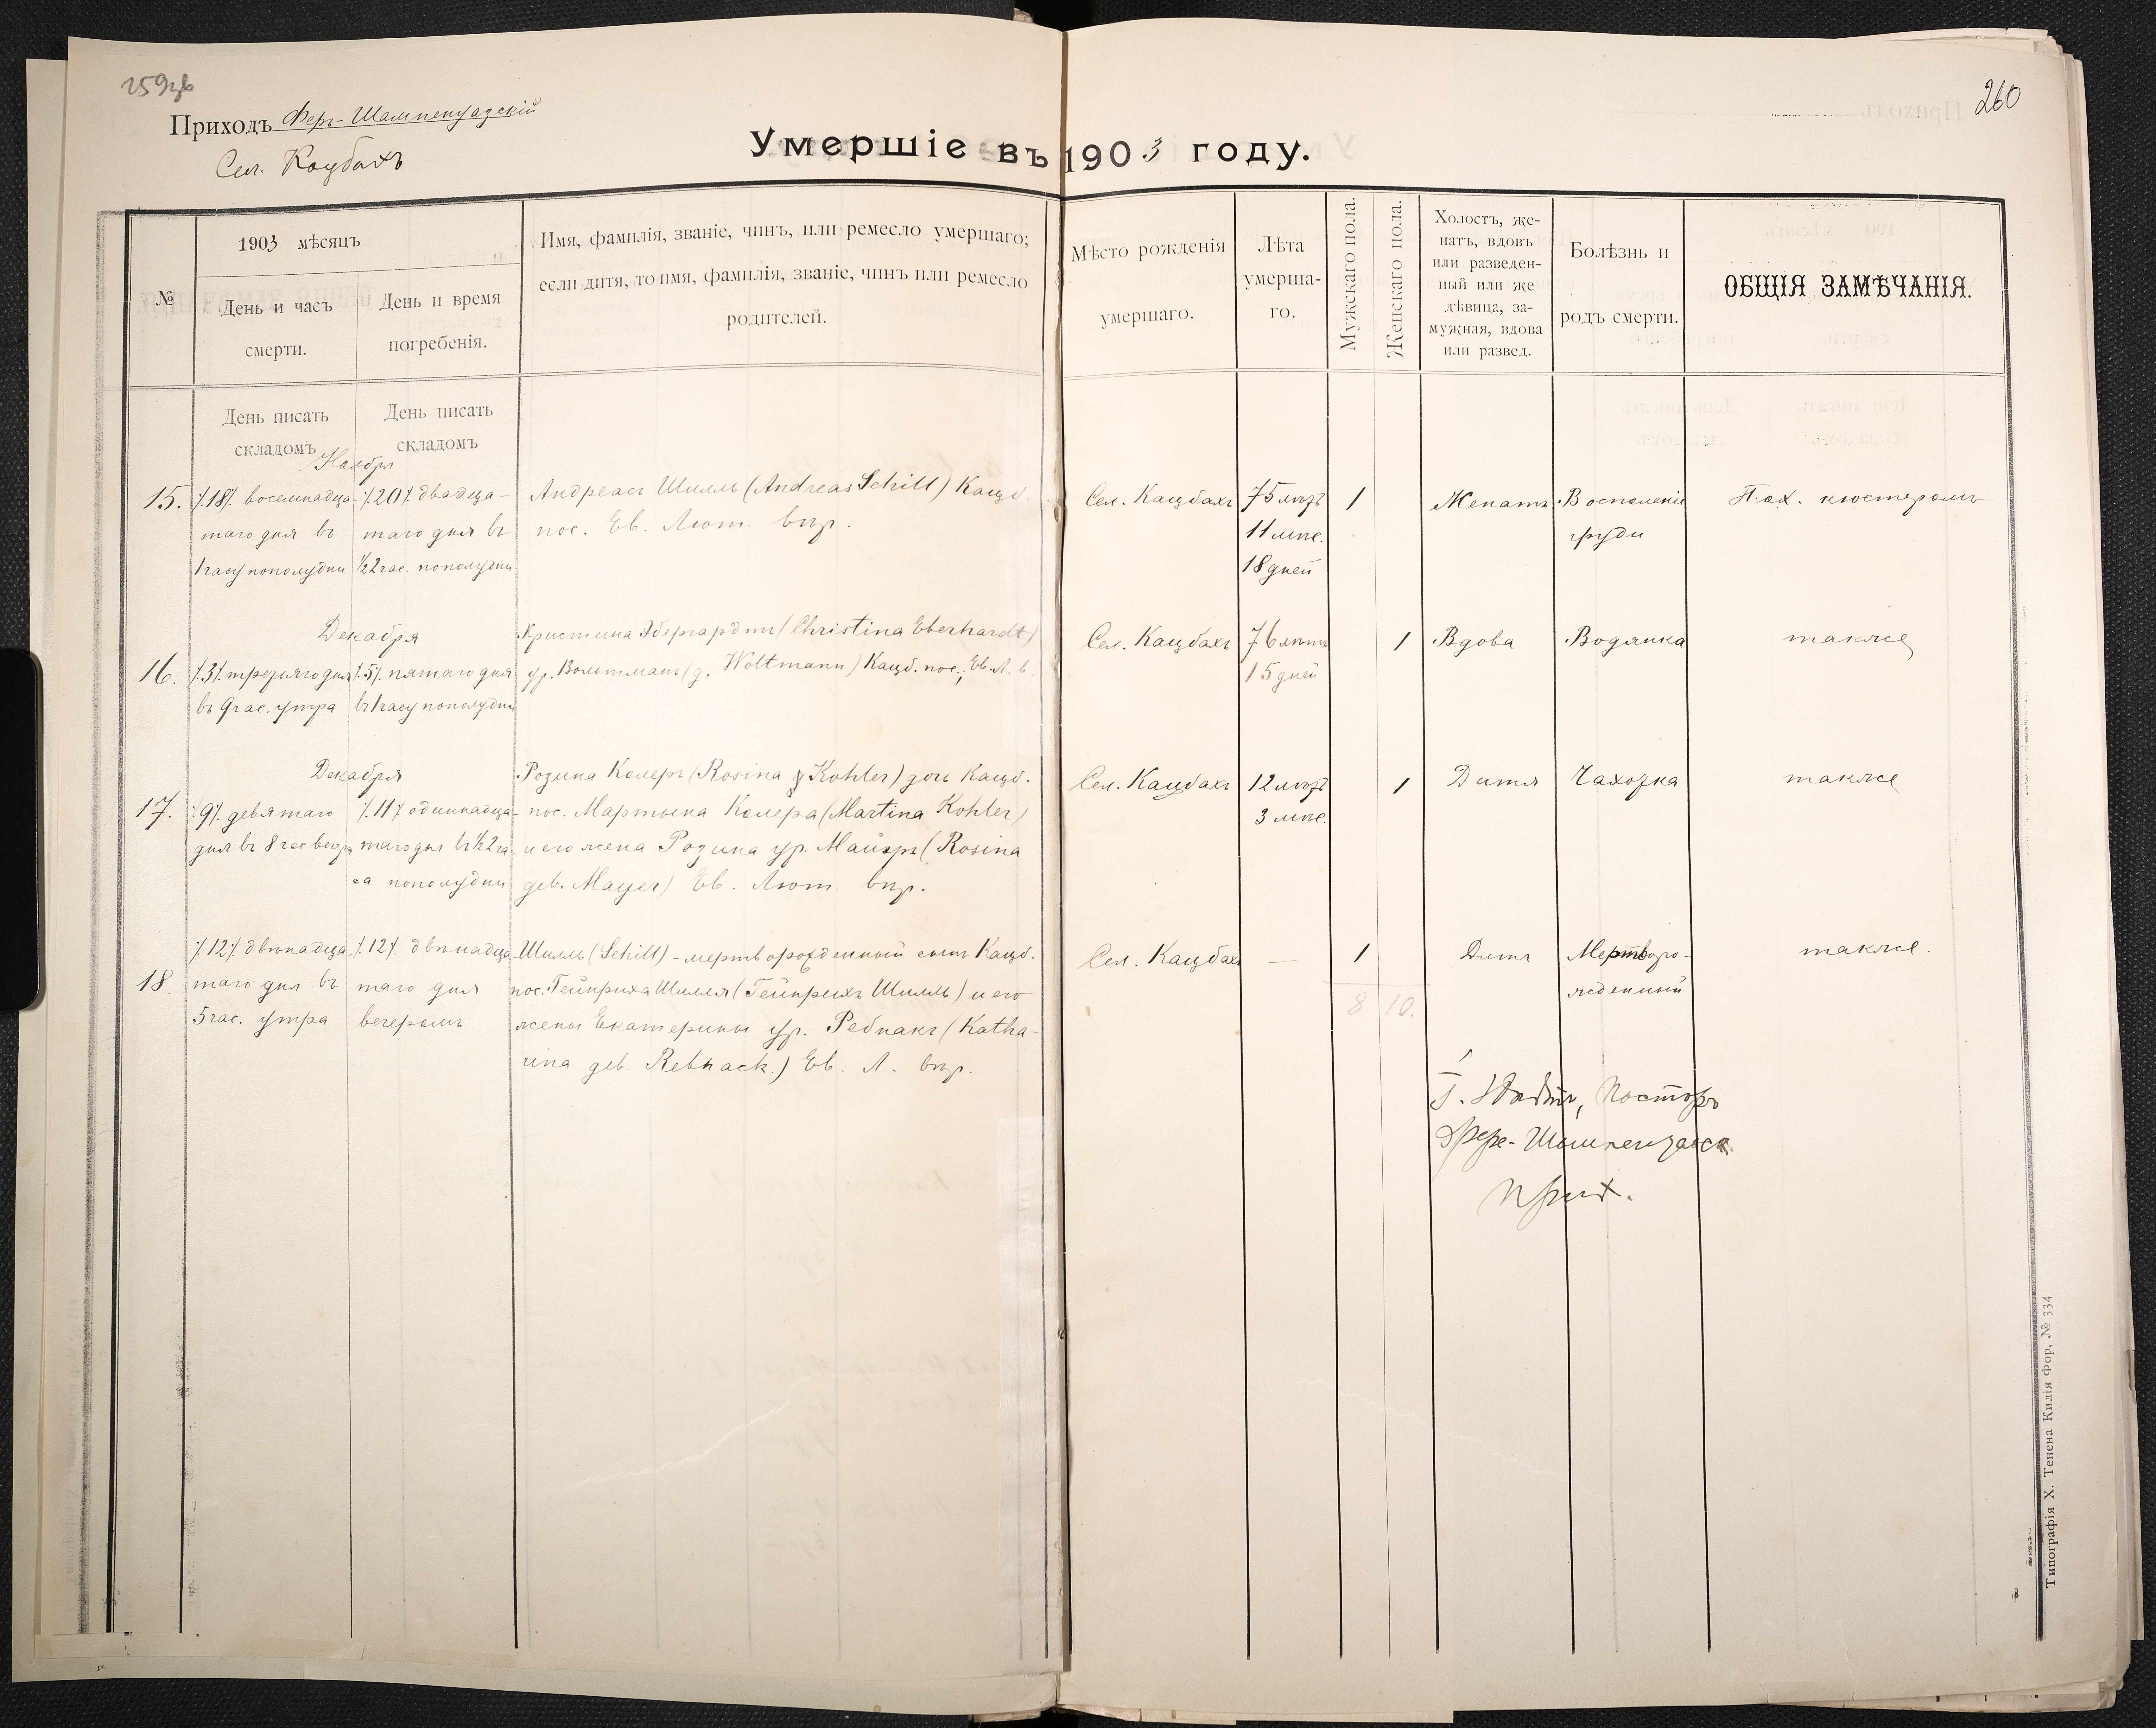 259зв
260
Приходъ Феръ-Шампенуазскій
Сел. Кацбахъ
Умершіе въ 1903 году.
№
1903 мѣсяцъ
День и часъ
смерти.
День и время
погребенія.
Имя, фамилія, званіе, чинъ, или ремесло умершаго;
если дитя, то имя, фамилія, званіе, чинъ или ремесло
родителей.
Мѣсто рожденія
умершаго.
Лѣта
умерша-
го.
Мужскаго пола.
Женскаго пола.
Холостъ, же-
натъ, вдовъ
или разведен-
ный или же
дѣвица, за-
мужная, вдова
или развед.
Болѣзнь и
родъ смерти.
ОБЩІЯ ЗАМѢЧАНІЯ.
День писать
складомъ
День писать
складомъ
Ноября
15.
/.18/. восемнадца-
таго дня въ
1 часу пополудни
/.20/. двадца-
таго дня въ
1/2 2 час. пополудни
Андреасъ Шилль (Andreas Schill) Кацб.
пос. Ев. Лют. вѣр.
Сел. Кацбахъ
75 лѣтъ
11 мѣс.
18 дней
1
Женатъ
Воспаленіе
груди
Пох. кюстеромъ
Декабря
16.
/.3/. третьяго дня
въ 9 час. утра
/.5/. пятаго дня
въ 1 часу пополудни
Христина Эбергардтъ (Christina Eberhardt)
ур. Вольтманъ (g. Woltmann) Кацб. пос., Ев. Л. в.
Сел. Кацбахъ
76 лѣтъ
15 дней
1
Вдова
Водянка
также
Декабря
17.
/.9/. девятаго
дня въ 8 час вечера
/.11/. одиннадца-
таго дня въ 1/2 2 ча-
са пополудни
Розина Колеръ (Rosina Kohler) дочь Кацб.
пос. Мартына Колера (Martina Kohler)
и его жена Розина ур. Майэръ (Rosina
geb. Mayer) Ев. Лют. вѣр.
Сел. Кацбахъ
12 лѣтъ
3 мѣс.
1
Дитя
Чахотка
также
18.
/.12/. двѣнадца-
таго дня въ
5 час. утра
/.12/. двѣнадца-
таго дня
вечеромъ
Шилль (Schill) - мертворожденный сынъ Кацб.
пос. Гейнриха Шилля (Гейнрихъ Шилль) и его
жены Екатерины ур. Ребнакъ (Katha-
rina geb. Rebnack.) Ев. Л. вѣр.
Сел. Кацбахъ
—
1
Дитя
Мертворо-
жденный
также.
8 10.
Пасторъ
Фере-Шампенуазск.
прих.
Типографія Х. Тенена Килія Фор. № 334